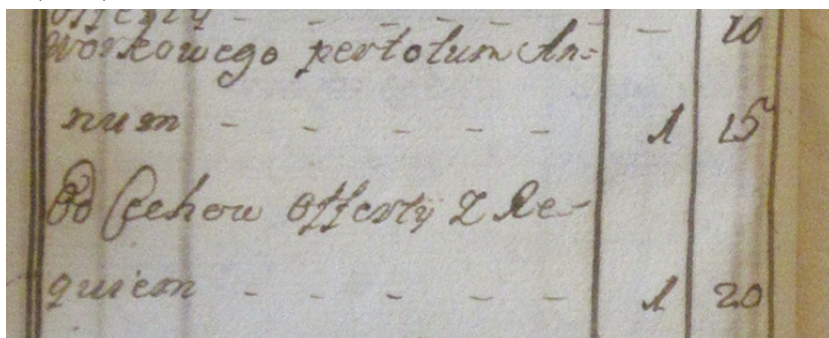 offerty - - - - - - 10
Workowego pertotum An=
num - - - - - 1 15
Od Cechow offerty z Re-
quiem - - - - - 1 20